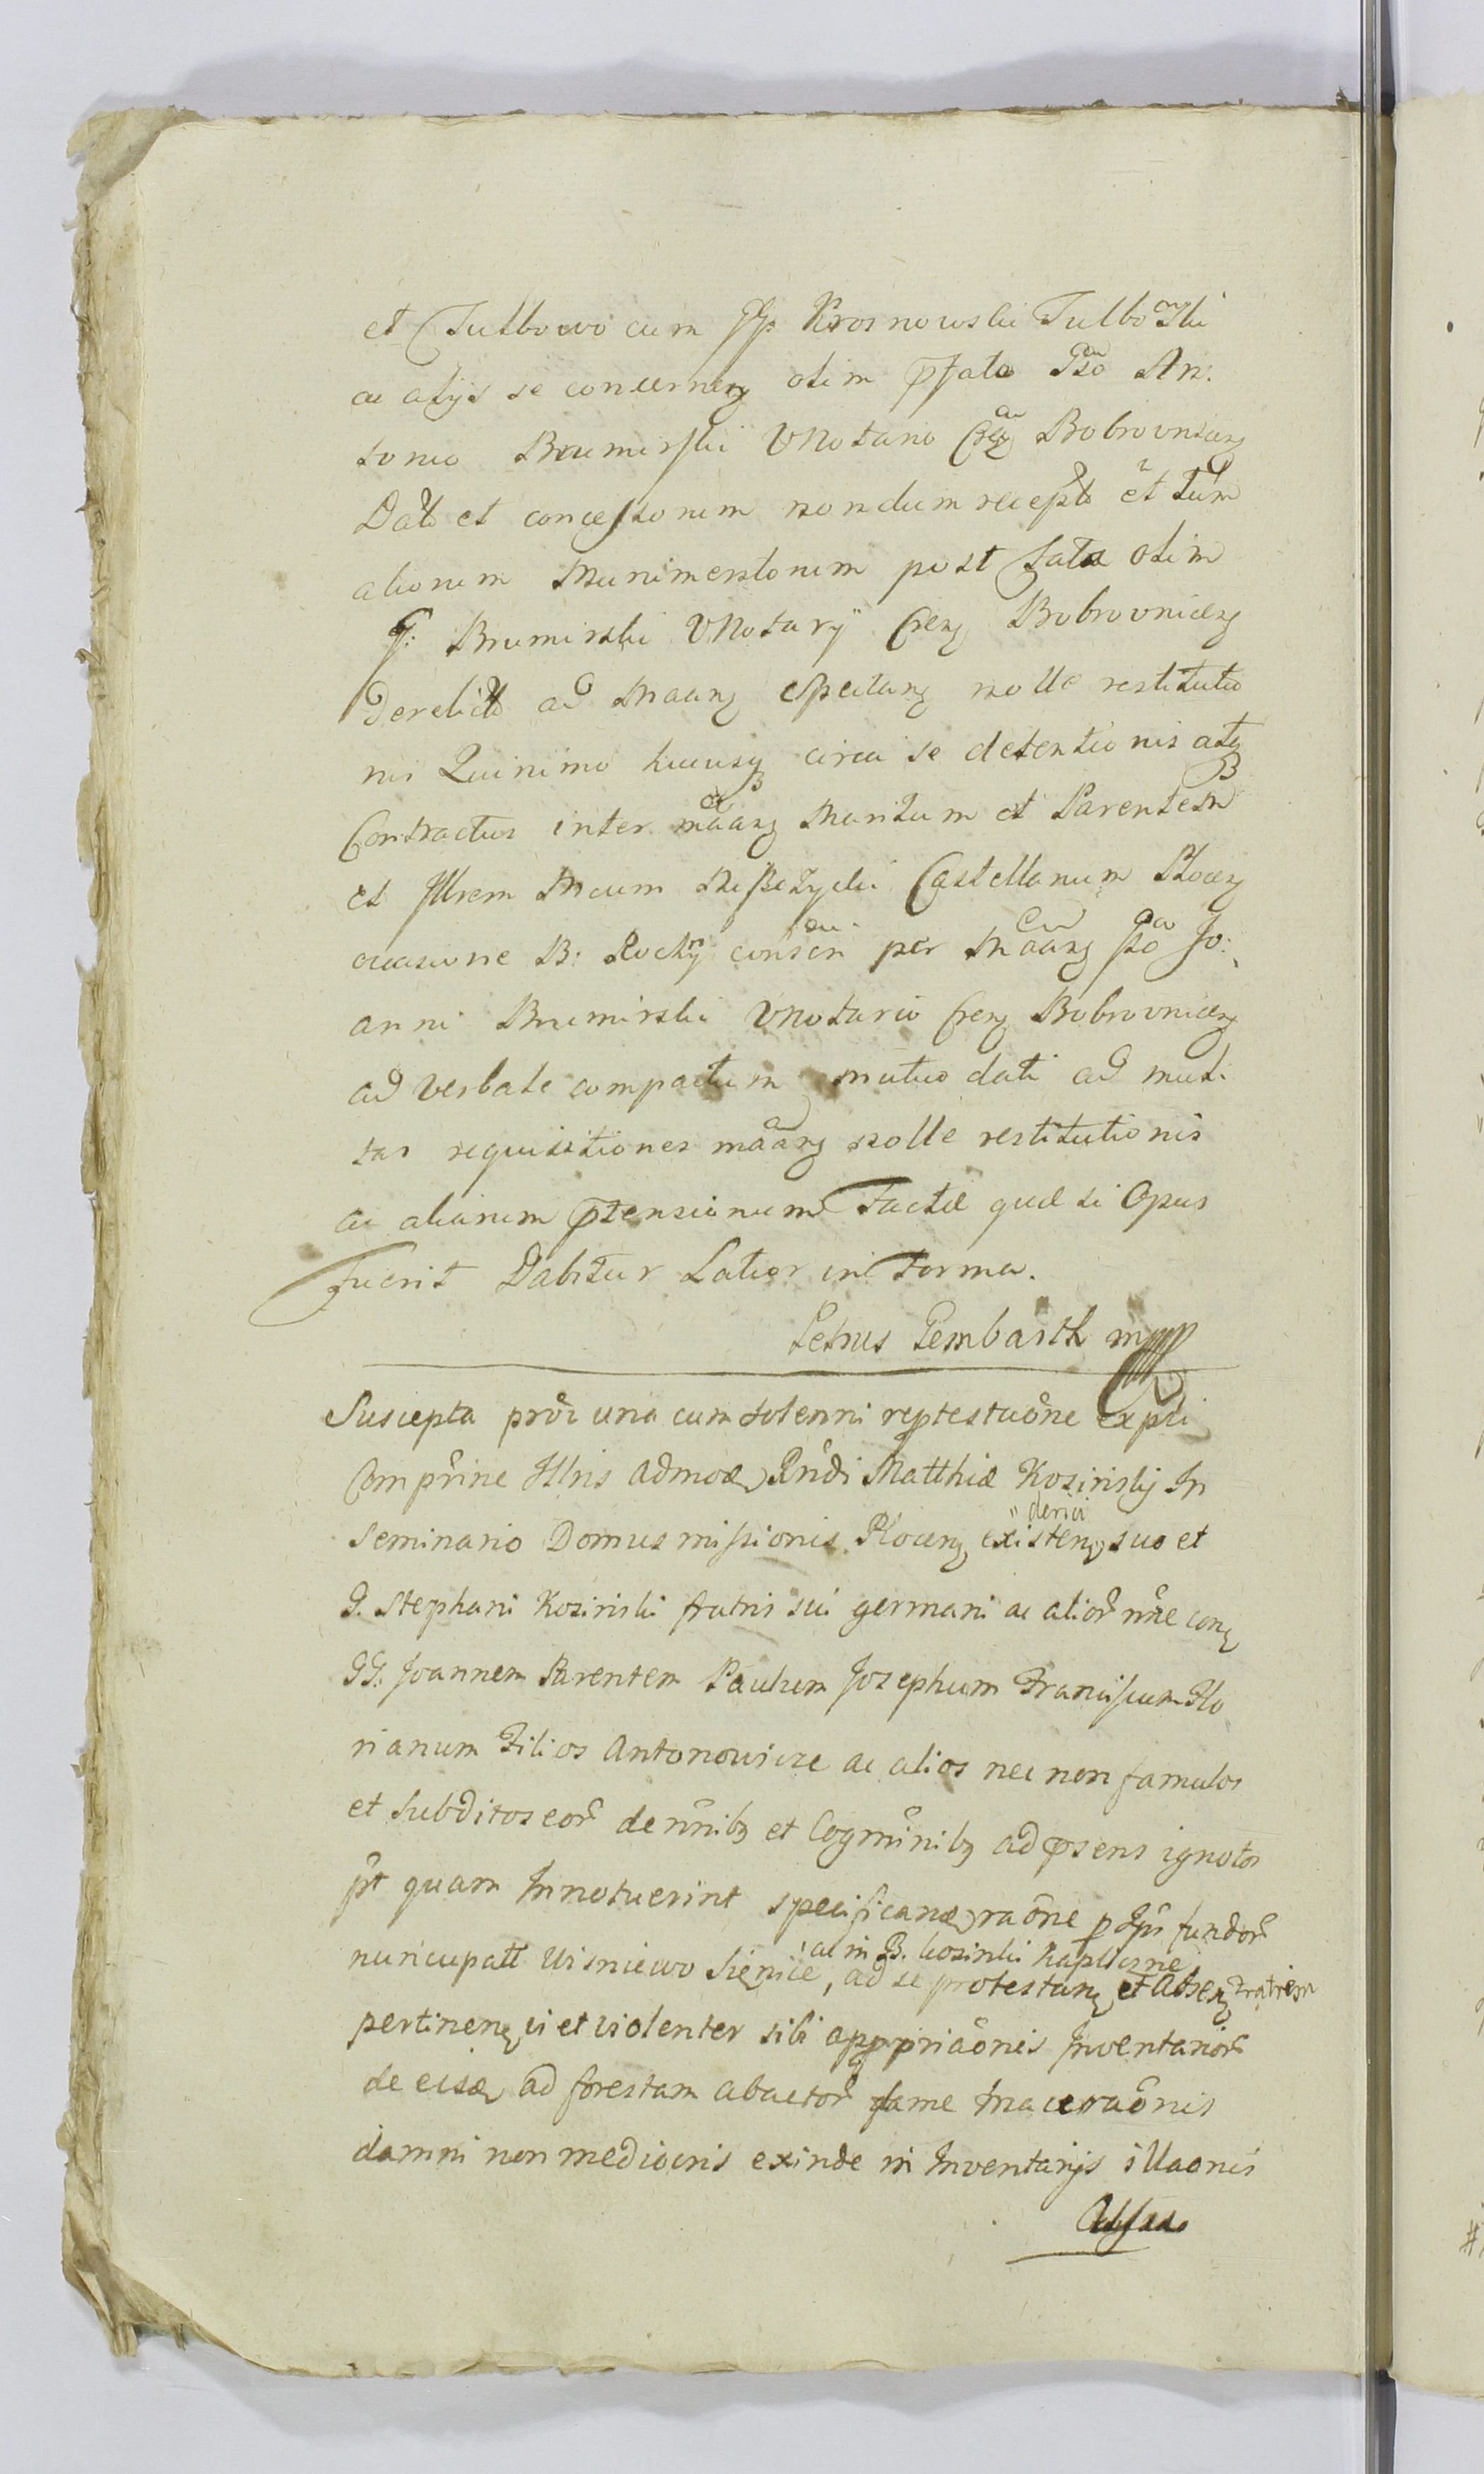 et Tulbowo cum Krosnowski Tulbowski
ac alijs se concernen olim pfato Gso An:
tonio Brumirski VNotario Bobrovnicen
Dato et concessorum nondum recepto et tum
aliorum Munimentorum post fata olim
G: Brumirski VNotary Cren Bobrovnicen
Derelicto ad Maang spectang nolle restitutio
nis Quinimo hucusq circa se detentionis atq
Contractus inter maang Maritum et Parentem
et Jllrem Mcum Castellanum Plocen
occasione B: per Maang Jo:
anni Brumirski VNotario Cren Bobrovnicen
ad Verbale compactum mutuo dati ad mul:
tas requisitiones maang nolle restitutionis
ac aliarum ptensionum Factæ quæ si Opus
Fuerit Dabitur Latior in Forma.
Petrus Pembarth mpp
Suscepta prõr una cum solenni reptestaõne
Comprine Illris admod Rndi Matthiæ Kozinskij In
Seminario Domus missionis Plocen existen clerici suo et
G. Stephani Kozinski fratris sui germani ac alior nñe con
GG: Joannem Parentem Paulum Josephum Franciscum Flo
rianum Filios Antonowicze ac alios nec non famulos
et Subditos eor de nñnib et Cogmñnib ad psens ignotos
pt quam Innotuerint specificand raõne fundor
nuncupatt Wisniewo Sienice, ac in B. Kozinki Kapliczne ad se protestan et Absen Fratrem
pertinen vi et violenter sibi apppriaõnis Inventarior
de eisd ad forestam abactor fame maceraõnis
damni non mediocris exinde in Inventarijs illaõnis